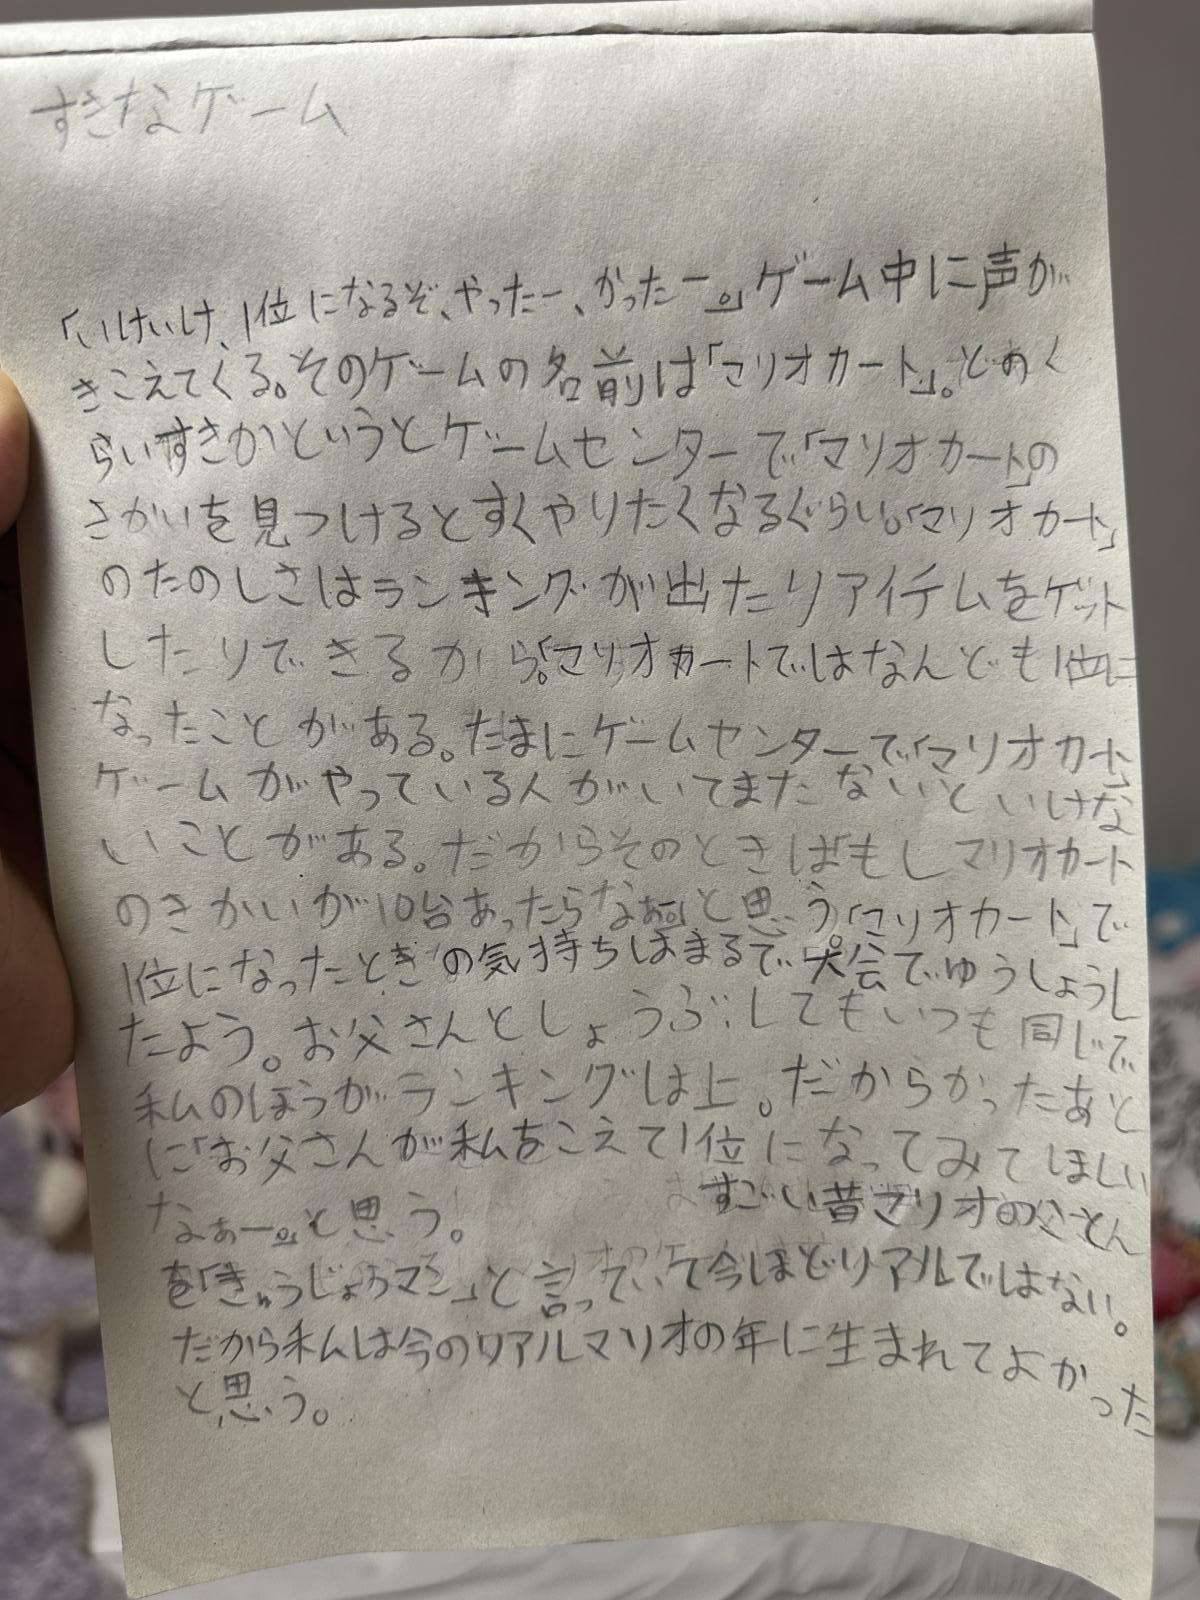 すきなゲーム
「いけいけ、1位になるぞ、やったー、かったー。」ゲーム中に声が
きこえてくる。そのゲームの名前は「マリオカート」。どのく
らいすきかというとゲームセンターで「マリオカート」の
きかいを見つけるとすぐやりたくなるぐらい。「マリオカート」
のたのしさはランキングが出たりアイテムをゲット
したりできるから。「マリオカートではなんども1位に
なったことがある。たまにゲームセンターで「マリオカート」
ゲームがやっている人がいてまたないといけな
いことがある。だからそのときは「もしマリオカート
のきかいが10台あったらなぁ。」と思う「マリオカート」で
1位になったときの気持ちはまるで大会でゆうしょうし
たよう。お父さんとしょうぶしてもいつも同じで
私のほうがランキングは上。だからかったあと
に「お父さんが私をこえて1位になってみてほしい
なぁー。」と思う。
すごい昔マリオの
を「きゅうじょうマン」と言っていて今ほどリアルではない。
だから私は今のリアルマリオの年に生まれてよかった
と思う。